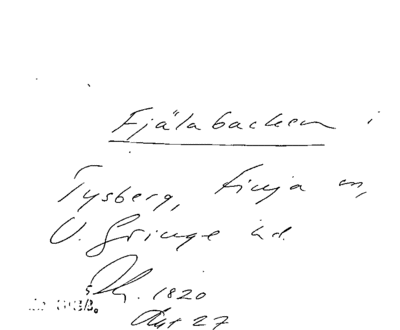 Fjälabacken i
Tysberg, Finja sn,
V. Göinge hd.
1820
Akt 27